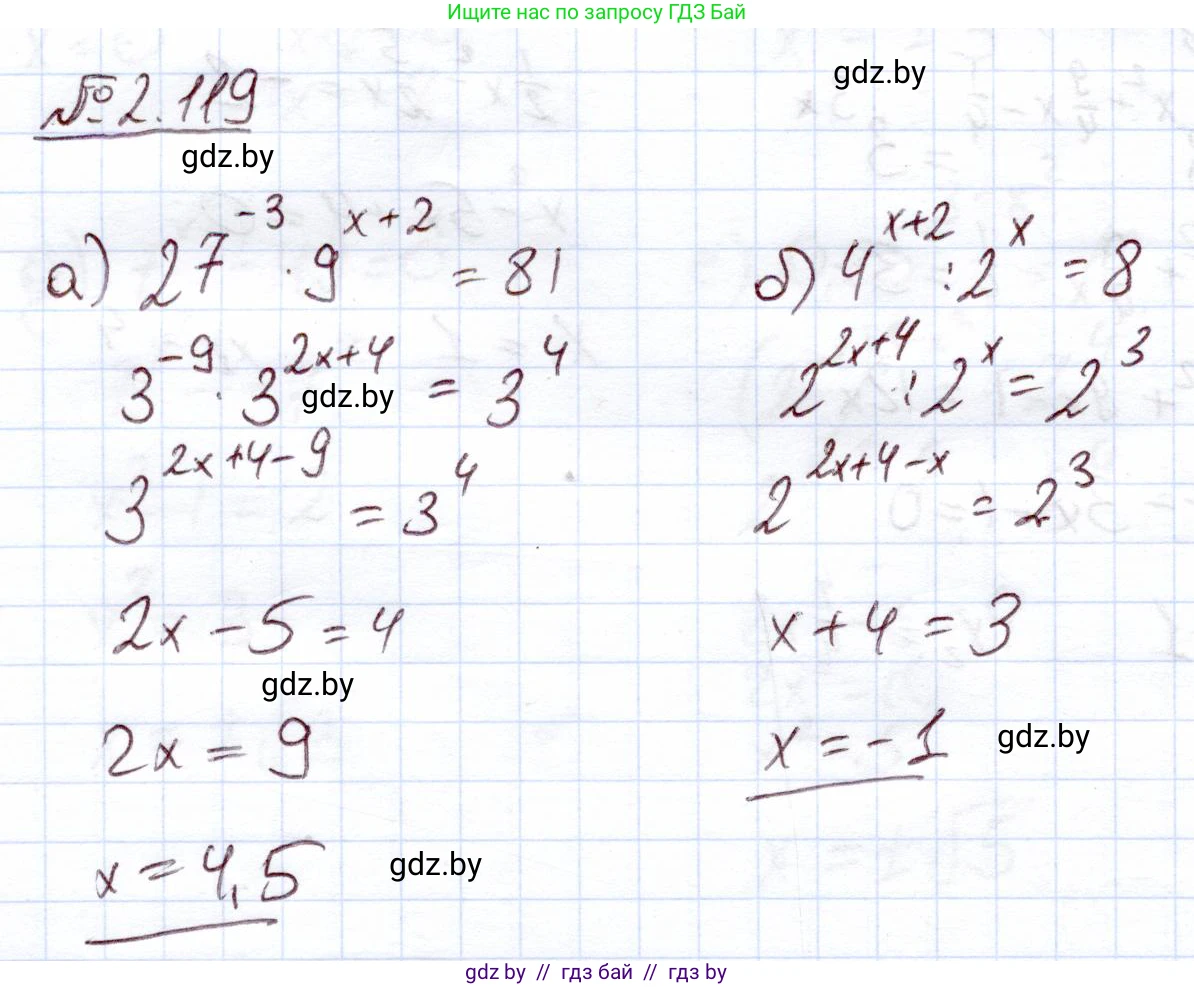 Ищите нас по запросу ГДЗ Бай
№ 2.119
gdz.by
gdz.by
а) 27^{-3} · 9^{x+2} = 81
3^{-9} · 3^{2x+4} = 3^4
gdz.by
3^{2x+4-9} = 3^4
2x - 5 = 4
gdz.by
2x = 9
x = 4,5
gdz.by
б) 4^{x+2} : 2^x = 8
2^{2x+4} : 2^x = 2^3
2^{2x+4-x} = 2^3
x + 4 = 3
x = -1
gdz.by
gdz by // гдз бай // гдз by